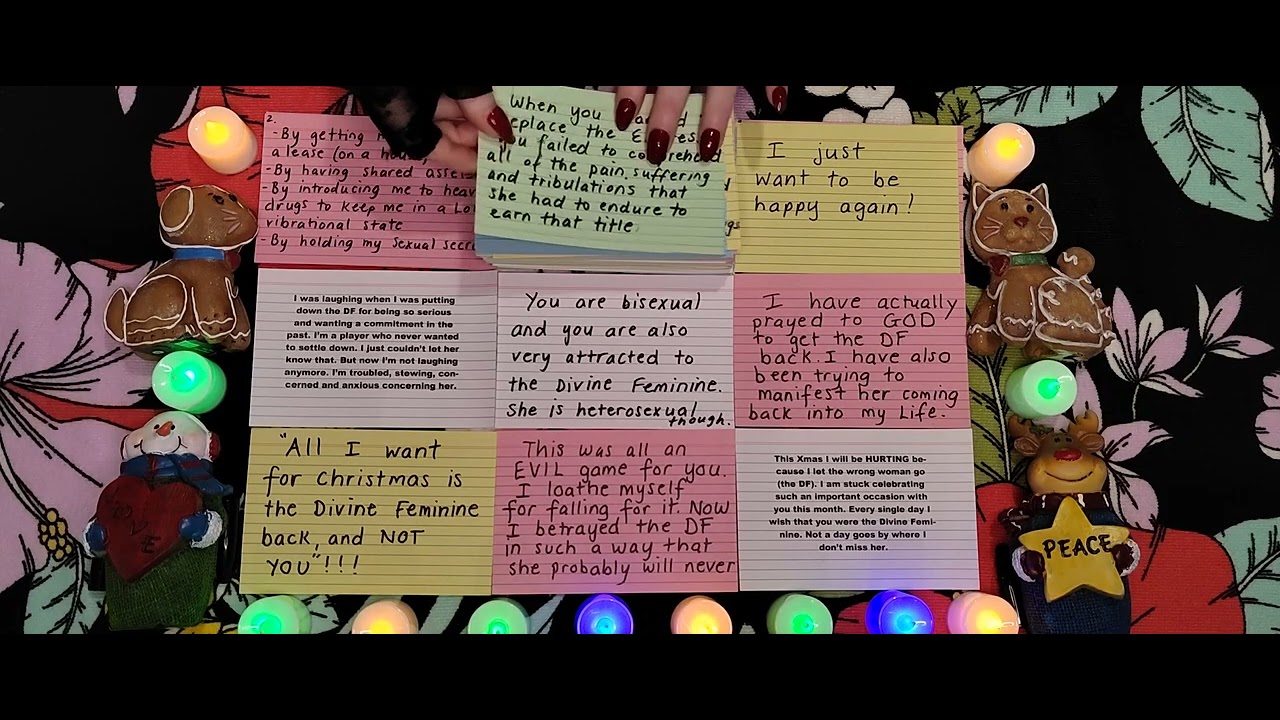 2.
-By getting
a lease (on a
-By having shared assets
-By introducing me to
drugs to keep me in a Low
vibrational state
-By holding my sexual
When you
replace the
you failed to comprehend
all of the pain, suffering
and tribulations that
she had to endure to
earn that title.
I just
want to be
happy again!
I was laughing when I was putting
down the DF for being so serious
and wanting a commitment in the
past. I'm a player who never wanted
to settle down. I just couldn't let her
know that. But now I'm not laughing
anymore. I'm troubled, stewing, con-
cerned and anxious concerning her.
You are bisexual
and you are also
very attracted to
the Divine Feminine.
She is heterosexual
though.
I have actually
prayed to GOD
to get the DF
back. I have also
been trying to
manifest her coming
back into my Life.
"All I want
for Christmas is
the Divine Feminine
back, and NOT
YOU"!!!
This was all an
EVIL game for you.
I loathe myself
for falling for it. Now
I betrayed the DF
in such a way that
she probably will never
This Xmas I will be HURTING be-
cause I let the wrong woman go
(the DF). I am stuck celebrating
such an important occasion with
you this month. Every single day I
wish that you were the Divine Femi-
nine. Not a day goes by where I
don't miss her.
LOVE
PEACE